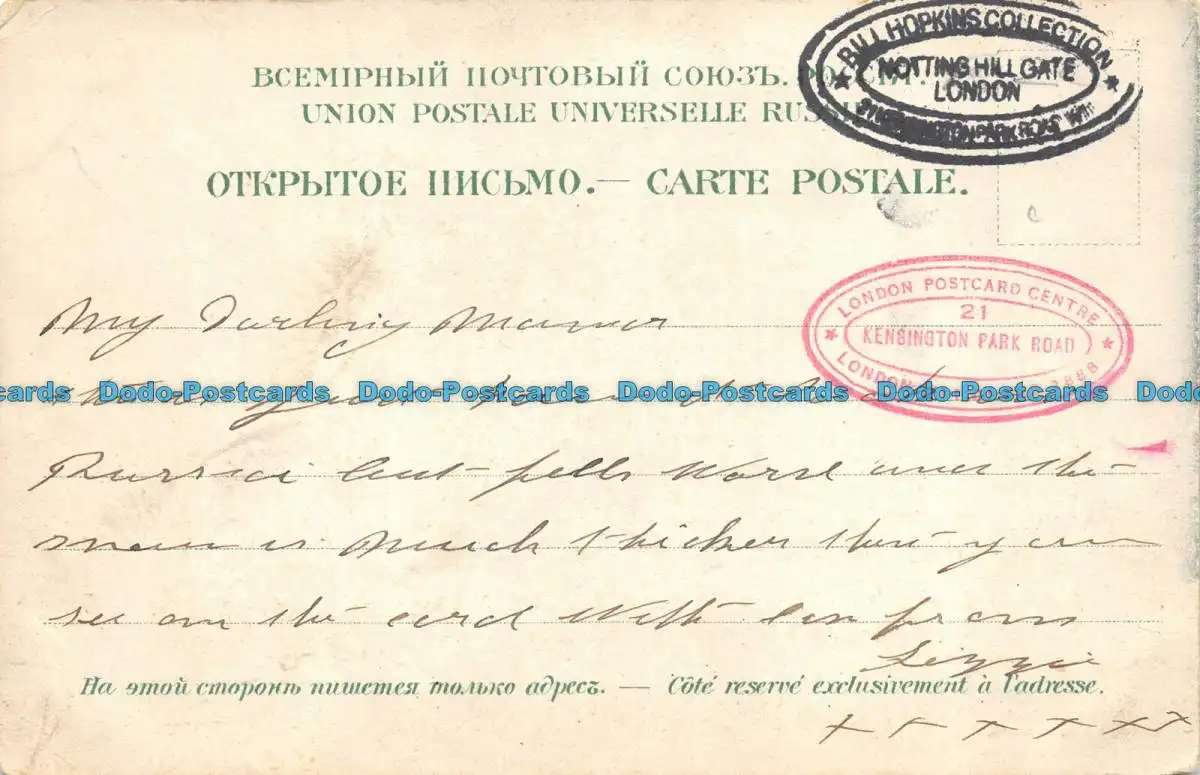 BILL HOPKINS COLLECTION
NOTTING HILL GATE
LONDON
KENSINGTON PARK ROAD W11
ВСЕМІРНЫЙ ПОЧТОВЫЙ СОЮЗЪ. РОССІЯ.
UNION POSTALE UNIVERSELLE RUSSIE
ОТКРЫТОЕ ПИСЬМО.— CARTE POSTALE.
LONDON POSTCARD CENTRE
21
KENSINGTON PARK ROAD
LONDON
My Darling Mamer
Dodo-Postcards Dodo-Postcards Dodo-Postcards Dodo-Postcards Dodo-Postcards
Russia but the
is Much thicker then you
see on the card With from
Lizzie
На этой сторонѣ пишется только адресъ. — Côté reservé exclusivement à l'adresse.
+ + + + + +